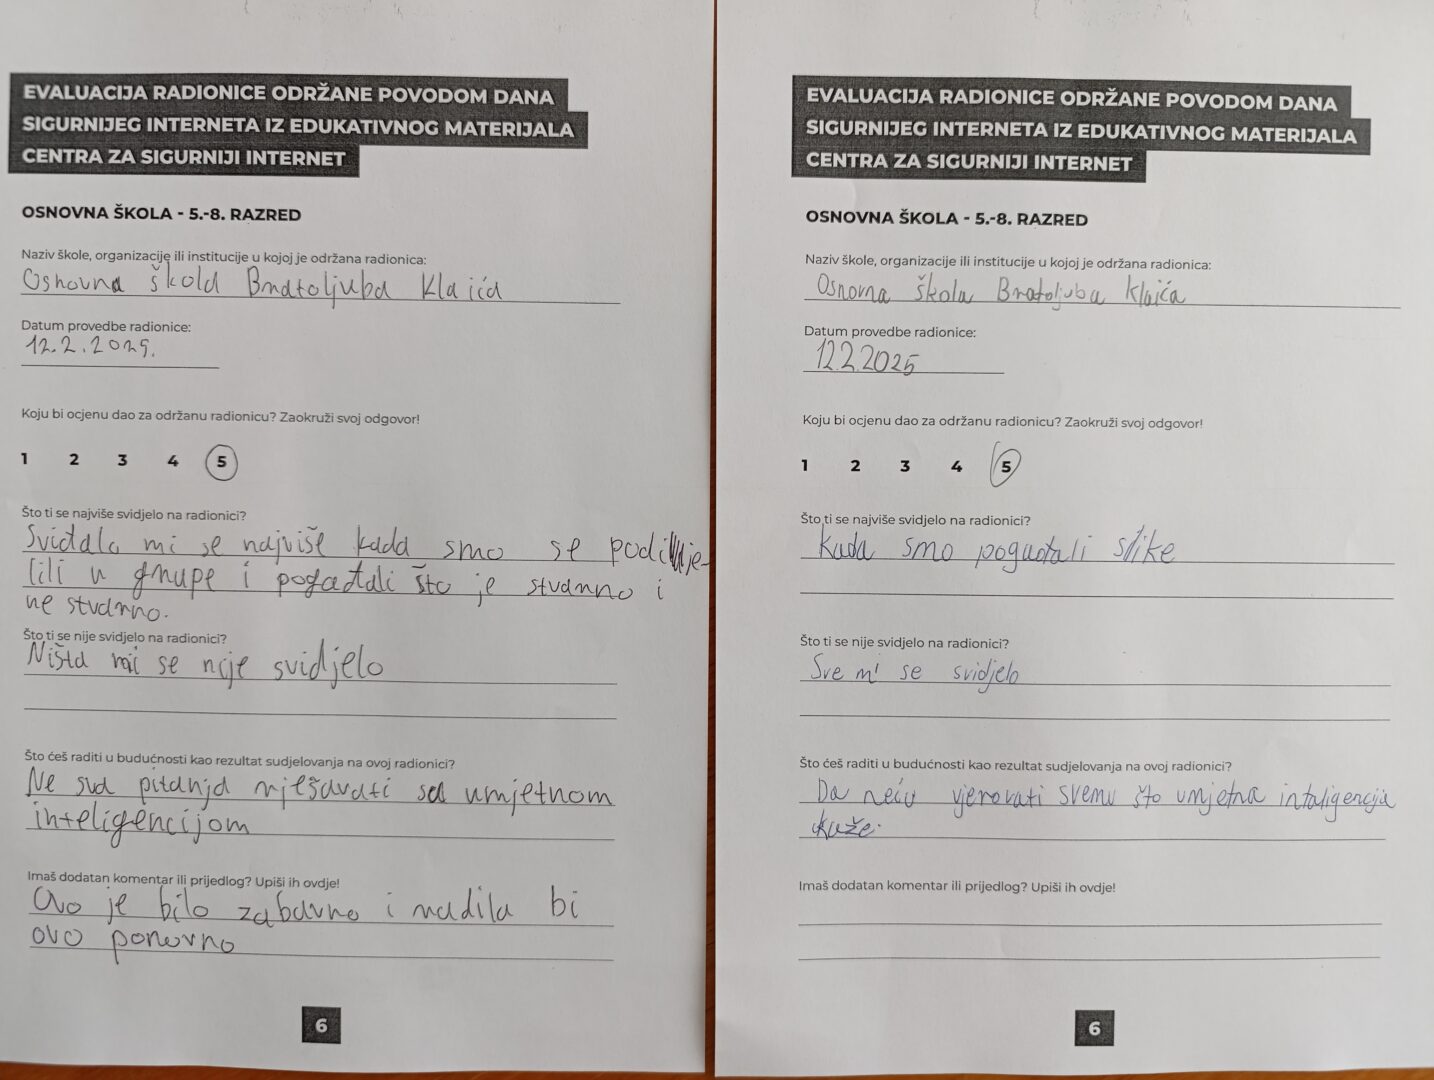 EVALUACIJA RADIONICE ODRŽANE POVODOM DANA
SIGURNIJEG INTERNETA IZ EDUKATIVNOG MATERIJALA
CENTRA ZA SIGURNIJI INTERNET
OSNOVNA ŠKOLA - 5.-8. RAZRED
Naziv škole, organizacije ili institucije u kojoj je održana radionica:
Osnovna škola Bratoljuba Klaića
Datum provedbe radionice:
12.2.2025.
Koju bi ocjenu dao za održanu radionicu? Zaokruži svoj odgovor!
1 2 3 4 5
Što ti se najviše svidjelo na radionici?
Sviđalo mi se najviše kada smo se podijelje-
lili u grupe i pogađali što je stvarno i
ne stvarno.
Što ti se nije svidjelo na radionici?
Ništa mi se nije svidjelo
Što ćeš raditi u budućnosti kao rezultat sudjelovanja na ovoj radionici?
Ne sva pitanja rješavati sa umjetnom
inteligencijom
Imaš dodatan komentar ili prijedlog? Upiši ih ovdje!
Ovo je bilo zabavno i radila bi
ovo ponovno
6
EVALUACIJA RADIONICE ODRŽANE POVODOM DANA
SIGURNIJEG INTERNETA IZ EDUKATIVNOG MATERIJALA
CENTRA ZA SIGURNIJI INTERNET
OSNOVNA ŠKOLA - 5.-8. RAZRED
Naziv škole, organizacije ili institucije u kojoj je održana radionica:
Osnovna škola Bratoljuba Klaića
Datum provedbe radionice:
12.2.2025
Koju bi ocjenu dao za održanu radionicu? Zaokruži svoj odgovor!
1 2 3 4 5
Što ti se najviše svidjelo na radionici?
Kada smo slike
Što ti se nije svidjelo na radionici?
Sve mi se svidjelo
Što ćeš raditi u budućnosti kao rezultat sudjelovanja na ovoj radionici?
Da neću vjerovati svemu što umjetna intaligencija
kaže.
Imaš dodatan komentar ili prijedlog? Upiši ih ovdje!
6